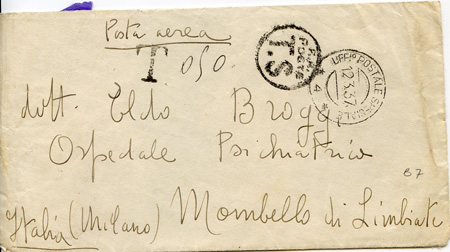 Posta aerea
T 050.
R.R. POSTE
T.S
UFFIº POSTALE SPECIALE
12.3.37
4
dott. Eldo Broggi
Ospedale Psichiatrico
87
Italia (Milano) Mombello di Limbiate